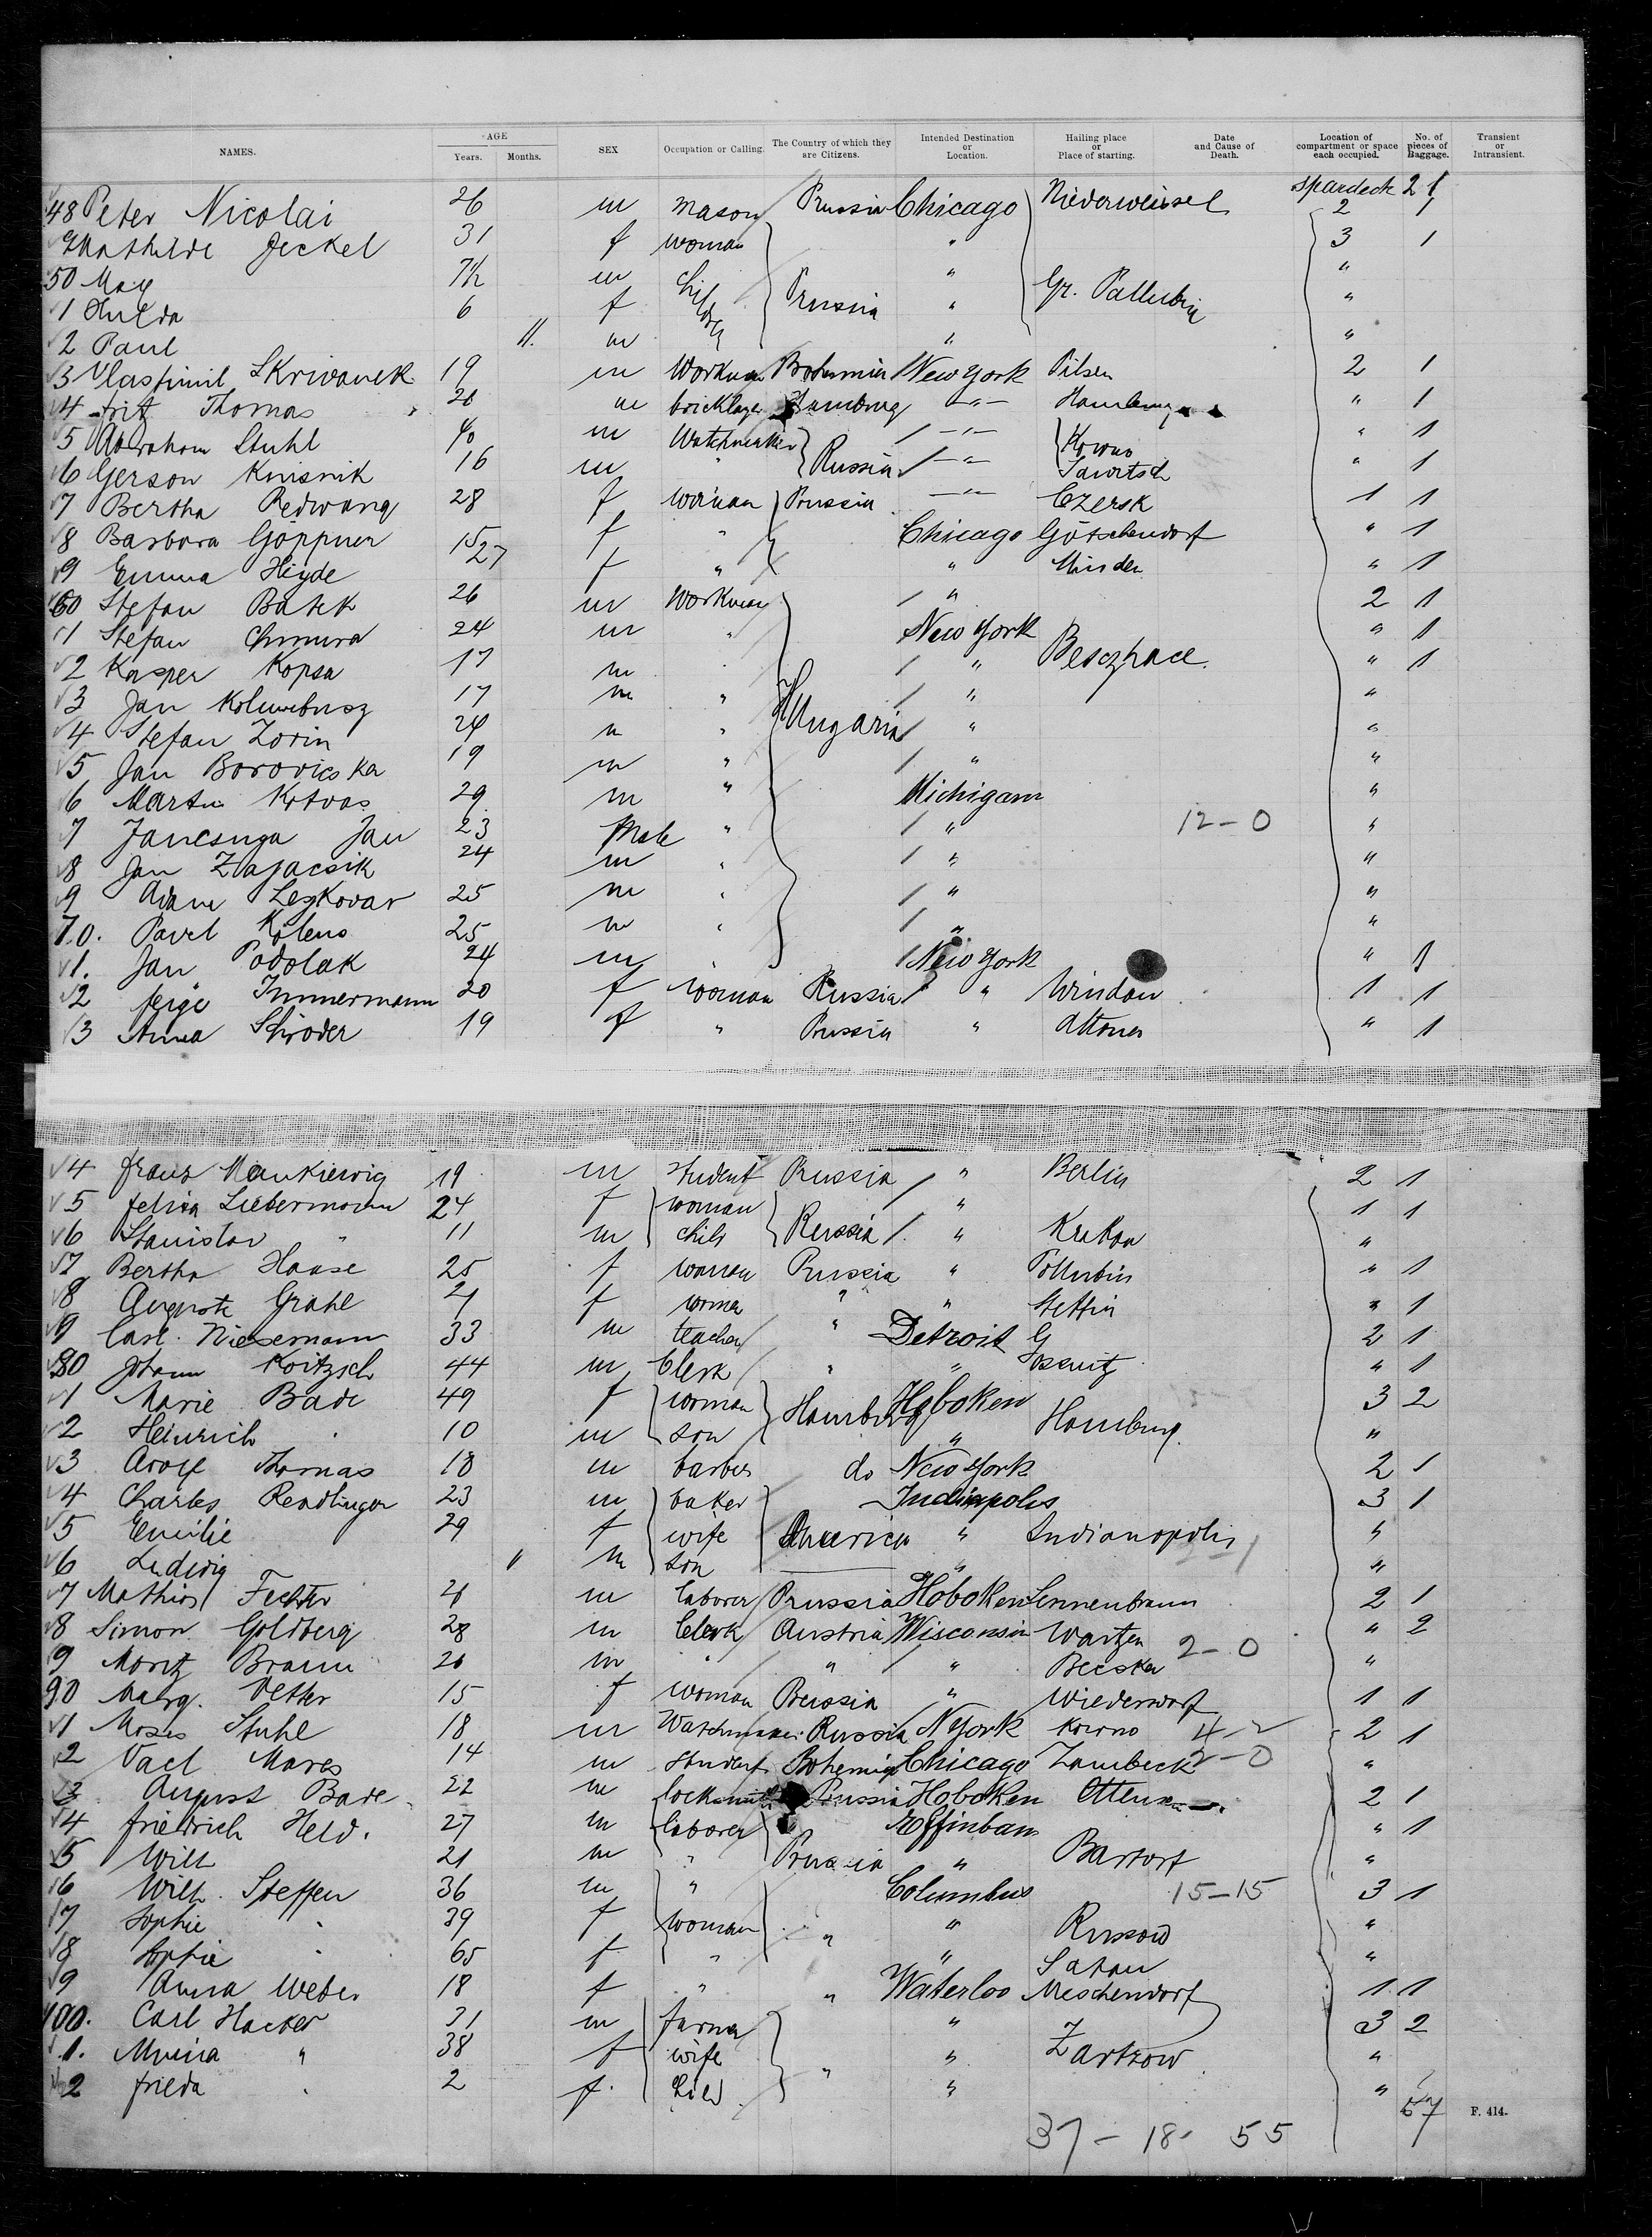 NAMES. AGE Years. Months. SEX Occupation or Calling. The Country of which they are Citizens. Intended Destination or Location. Hailing place or Place of starting. Date and Cause of Death. Location of compartment or space each occupied. No. of pieces of Baggage. Transient or Intransient.
spardeck 2 1
48 Peter Nicolai 26 m mason Prussia Chicago Niederweisel 2 1
9 Mathilde Jeckel 31 f woman " 3 1
50 Max 7½ m child " "
1 Hulda 6 f Prussia " Gr. Pallubin "
2 Paul 11. m " "
3 Vlastimil Skriwanek 19 m Workman Bohemia New York Pilsen 2 1
4 Fritz Thomas 20 m bricklayer Hamburg -"- Hamburg " 1
5 Abraham Stuhl 40 m Watchmaker -"- Kowno " 1
6 Gerson Knisnik 16 m " Russia -"- " 1
7 Bertha Redwang 28 f woman Prussia -"- Czersk 1 1
8 Barbara Göppner 15 f " Chicago Götschendorf " 1
9 Emma Heyde 27 f " " Minden " 1
60 Stefan Batek 26 m Workman " 2 1
1 Stefan Chmura 24 m " New York " 1
2 Kasper Kopsa 17 m " " " 1
3 Jan 17 m " " "
4 Stefan Zorin 24 m " Hungaria " "
5 Jan Borovicska 19 m " " "
6 Martin Kotvas 29 m " Michigan "
7 Jancsuga Jan 23 Male " " 12-0 "
8 Jan Zajacsik 24 m " " "
9 Adam Leskovar 25 m " " "
70. Pavel Koleno 25 m " " "
1. Jan Podolak 24 m " New York " 1
2 Feige Immermann 20 f woman Russia " Windau 1 1
3 Anna Schroder 19 f " Prussia " Altona " 1
4 Franz Mankiewig 19 m student Prussia " Berlin 2 1
5 Felixa Liebermann 24 f woman " 1 1
6 Stanislav " 11 m child Russia " Krakau "
7 Bertha Haase 25 f woman Prussia " Pollubin " 1
8 Auguste Grahl 21 f woman " " Stettin " 1
9 Carl Niesemann 33 m teacher " Detroit G 2 1
80 Johann Koitzsch 44 m Clerk " " Gossnitz " 1
1 Marie Bade 49 f woman Hamburg Hoboken Hamburg 3 2
2 Heinrich " 10 m son " "
3 Adolf Thomas 18 m barber do New York 2 1
4 Charles Rendlinger 23 m baker Indianpolis 3 1
5 Emilie 29 f wife America " Indianopolis "
6 Ludwig 11 m son " 2-1 "
7 Mathias Fechter 21 m laborer Prussia Hoboken 2 1
8 Simon Goldberg 28 m Clerk Austria Wisconsin Wartzen 2-0 " 2
9 Moritz Braun 20 m " " " Becska "
90 Marg. Vetter 15 f woman Prussia " Wiedersdorf 1 1
1 Moses Stuhl 18 m Watchmaker Russia N York Kowno 2 1
2 Vacl Mares 14 m student Bohemia Chicago Zambeck 2-0 "
3 August Bade 22 m locksmith Prussia Hoboken Ottensen 2 1
4 Friedrich Held. 27 m laborer Effinham " 1
5 Wilh 21 m " Prussia " Bartorf "
6 Wilh. Steffen 36 m " Columbus 15-15 3 1
7 Sophie " 39 f woman " " Russow "
8 Sophie " 65 f " " Satow "
9 Anna Weber 18 f " " Waterloo Meschendorf 1 1
100. Carl Hacker 31 m farmer " 3 2
1. Minna " 38 f wife " Zartzow "
2 Frieda " 2 f child " " "
57
F. 414.
37 - 18 - 55